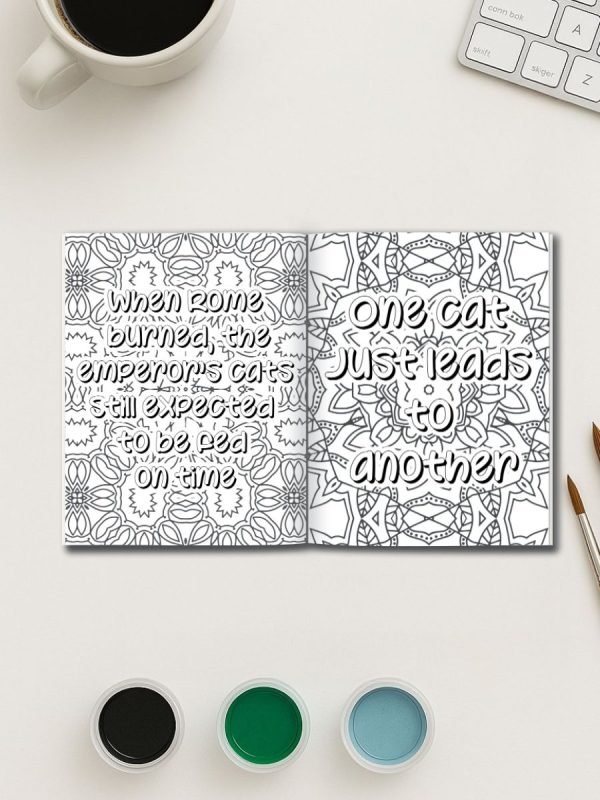 conn bok
A
skift
skiger
Z
When Rome
burned, the
emperor's cats
still expected
to be fed
on time
One cat
Just leads
to
another